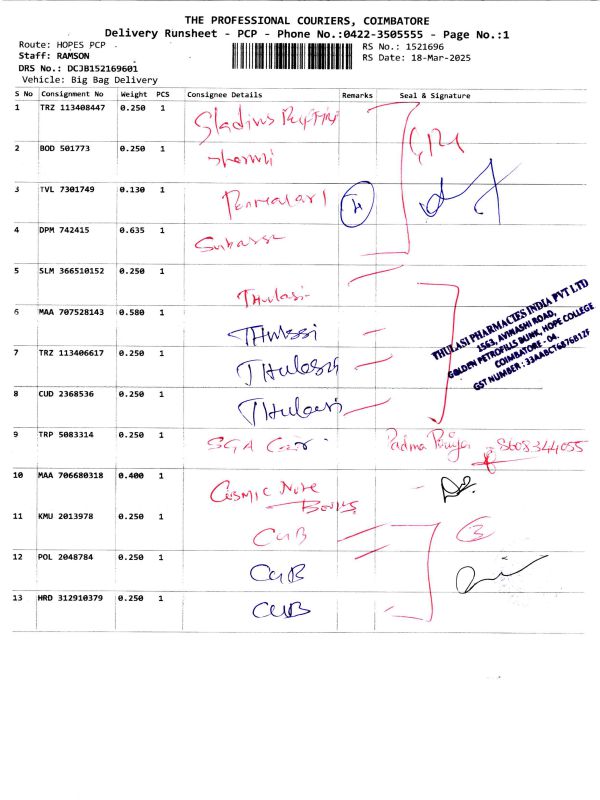 THE PROFESSIONAL COURIERS, COIMBATORE
Delivery Runsheet - PCP - Phone No.:0422-3505555 - Page No.:1
Route: HOPES PCP
Staff: RAMSON
DRS No.: DCJB152169601
Vehicle: Big Bag Delivery
RS No.: 1521696
RS Date: 18-Mar-2025
S No Consignment No Weight PCS Consignee Details Remarks Seal & Signature
1 TRZ 113408447 0.250 1 Gladius
2 BOD 501773 0.250 1 Sharmi
3 TVL 7301749 0.130 1
4 DPM 742415 0.635 1
5 SLM 366510152 0.250 1 Thulasi
6 MAA 707528143 0.580 1 THulssi
7 TRZ 113406617 0.250 1 THulasi
8 CUD 2368536 0.250 1 THulasi
THULASI PHARMACIES INDIA PVT LTD
1563, AVINASHI ROAD,
GOLDEN PETROFILLS BUNK, HOPE COLLEGE
COIMBATORE - 04.
GST NUMBER : 33AABCT6876B1ZF
9 TRP 5083314 0.250 1 SGA Padma Priya 8608344055
10 MAA 706680318 0.400 1 Cosmic Note Books
11 KMU 2013978 0.250 1 CUB 3
12 POL 2048784 0.250 1 CUB
13 HRD 312910379 0.250 1 CUB